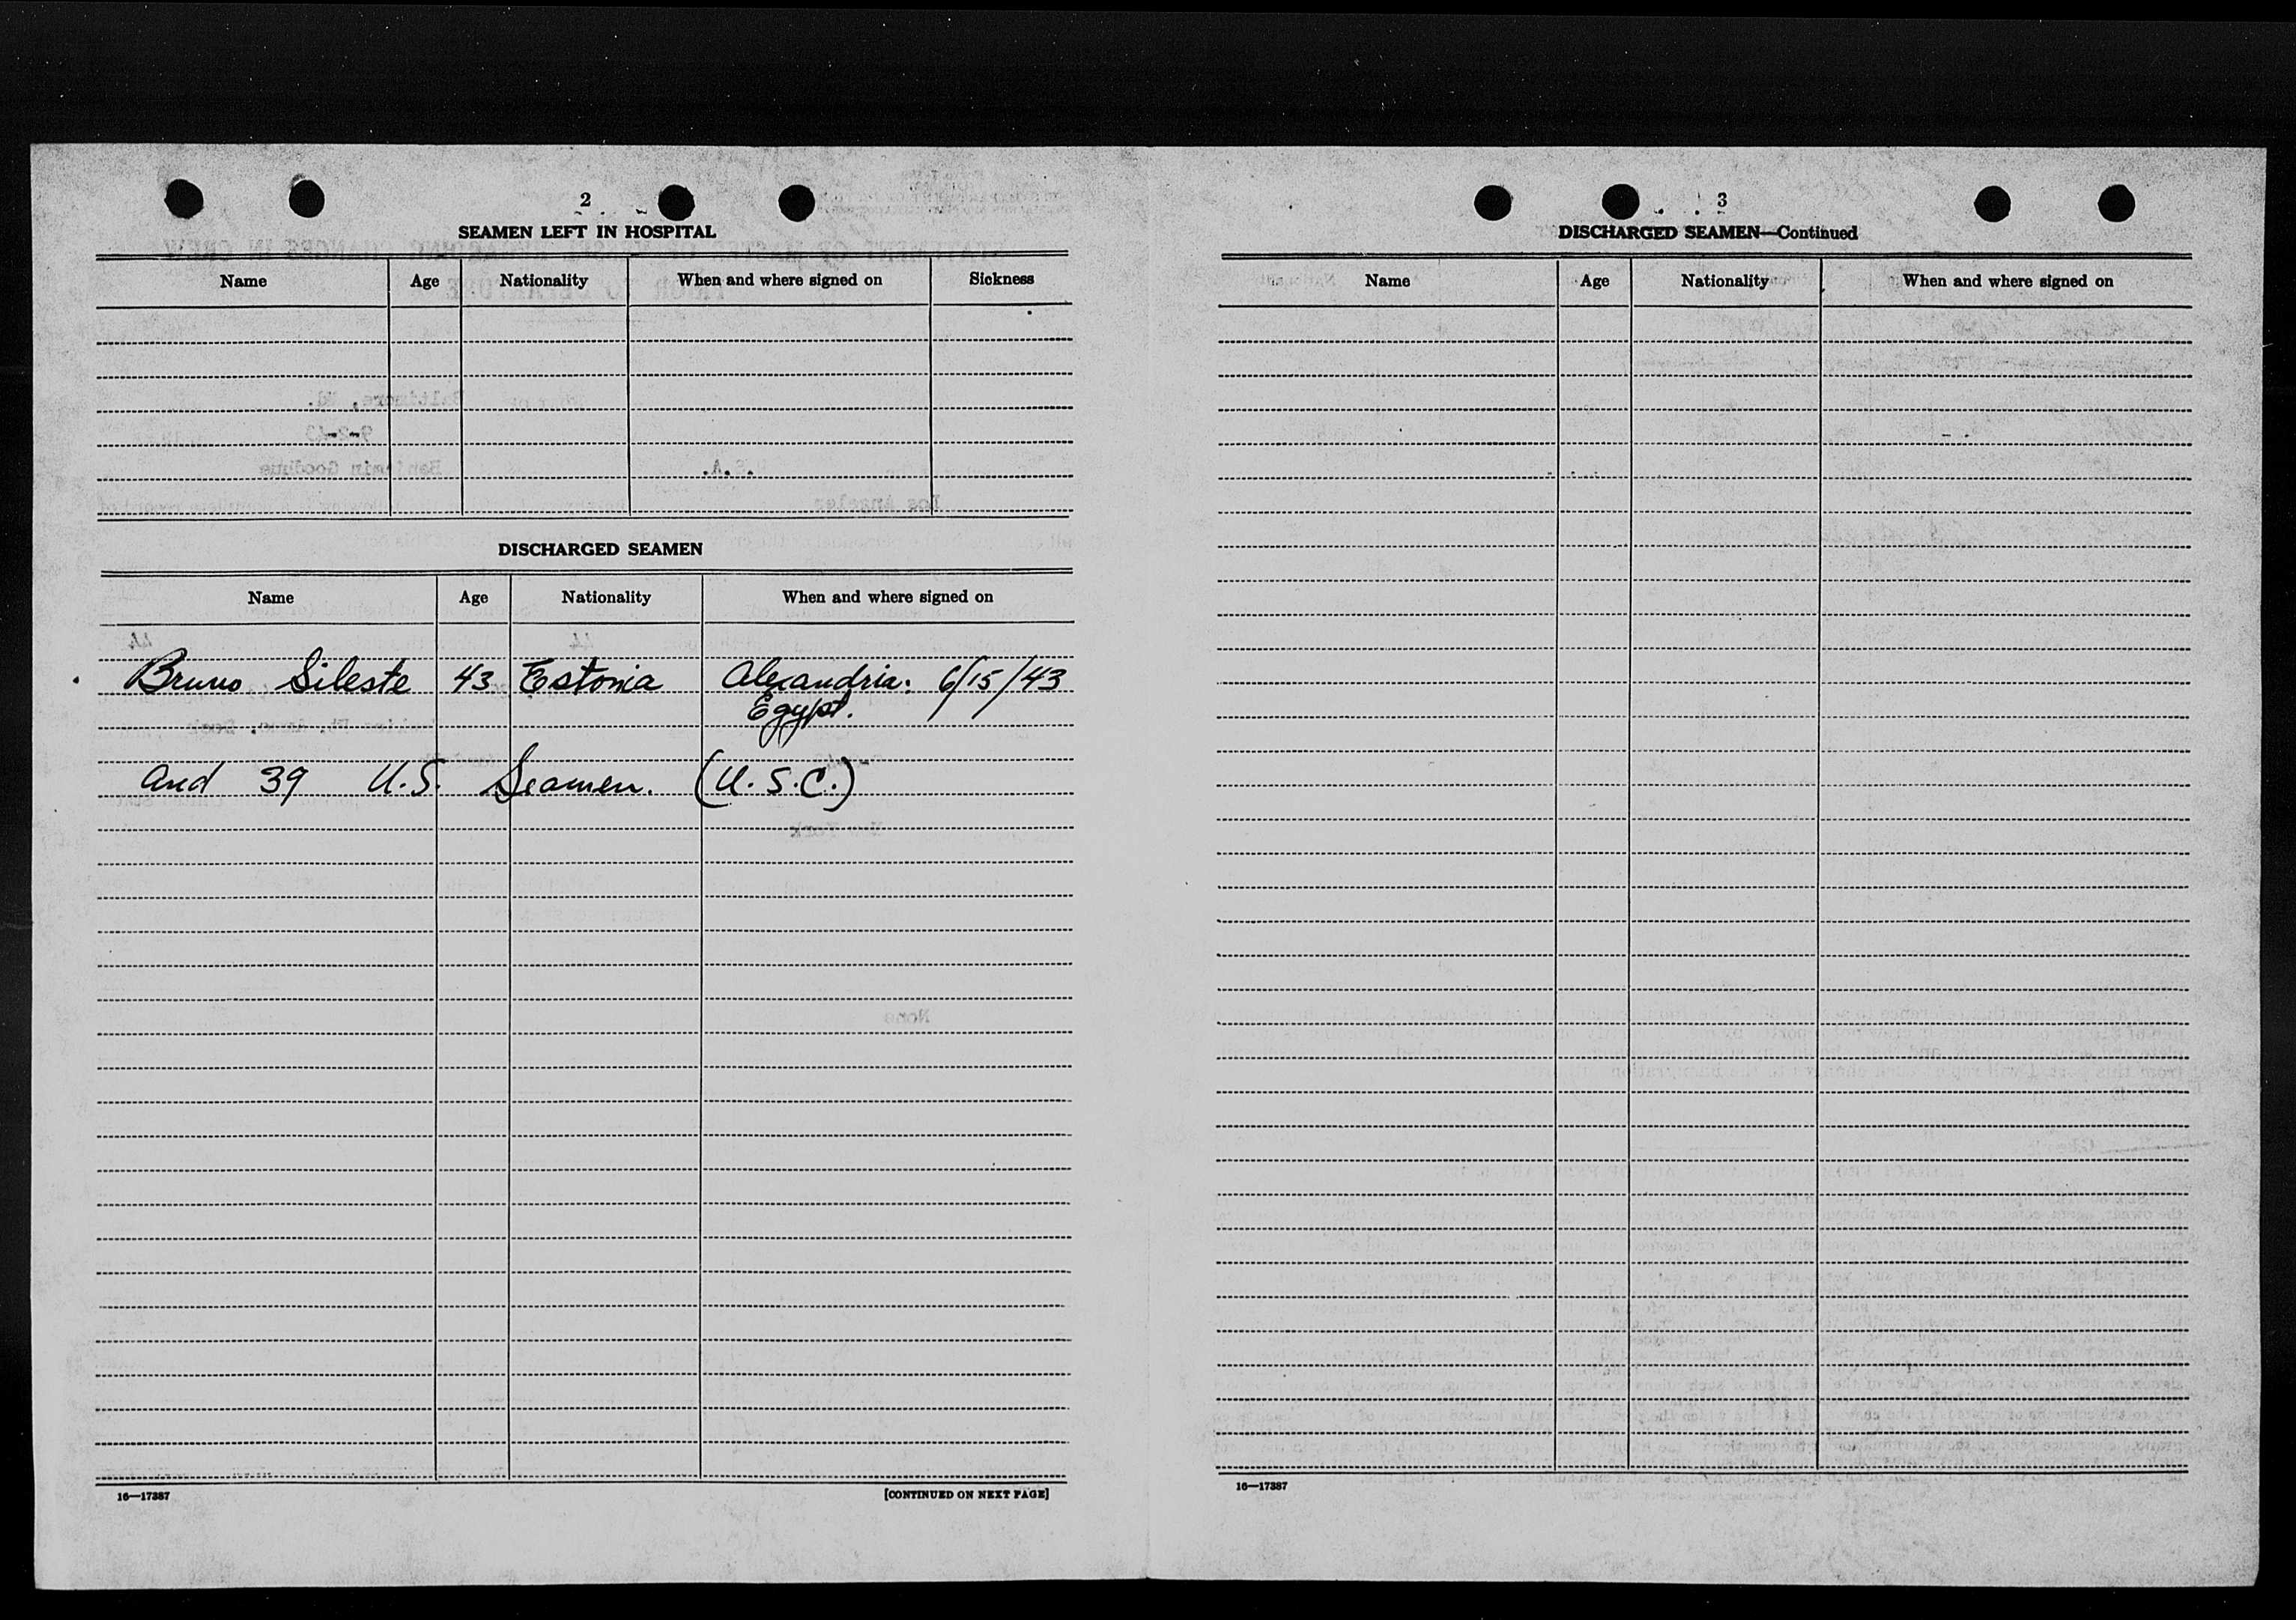 2
SEAMEN LEFT IN HOSPITAL
Name Age Nationality When and where signed on Sickness
DISCHARGED SEAMEN
Name Age Nationality When and where signed on
Bruno Sileste 43 Estonia Alexandria. 6/15/43
Egypt.
and 39 U.S. Seamen. (U.S.C.)
16—17387 [CONTINUED ON NEXT PAGE]
3
DISCHARGED SEAMEN—Continued
Name Age Nationality When and where signed on
16—17387